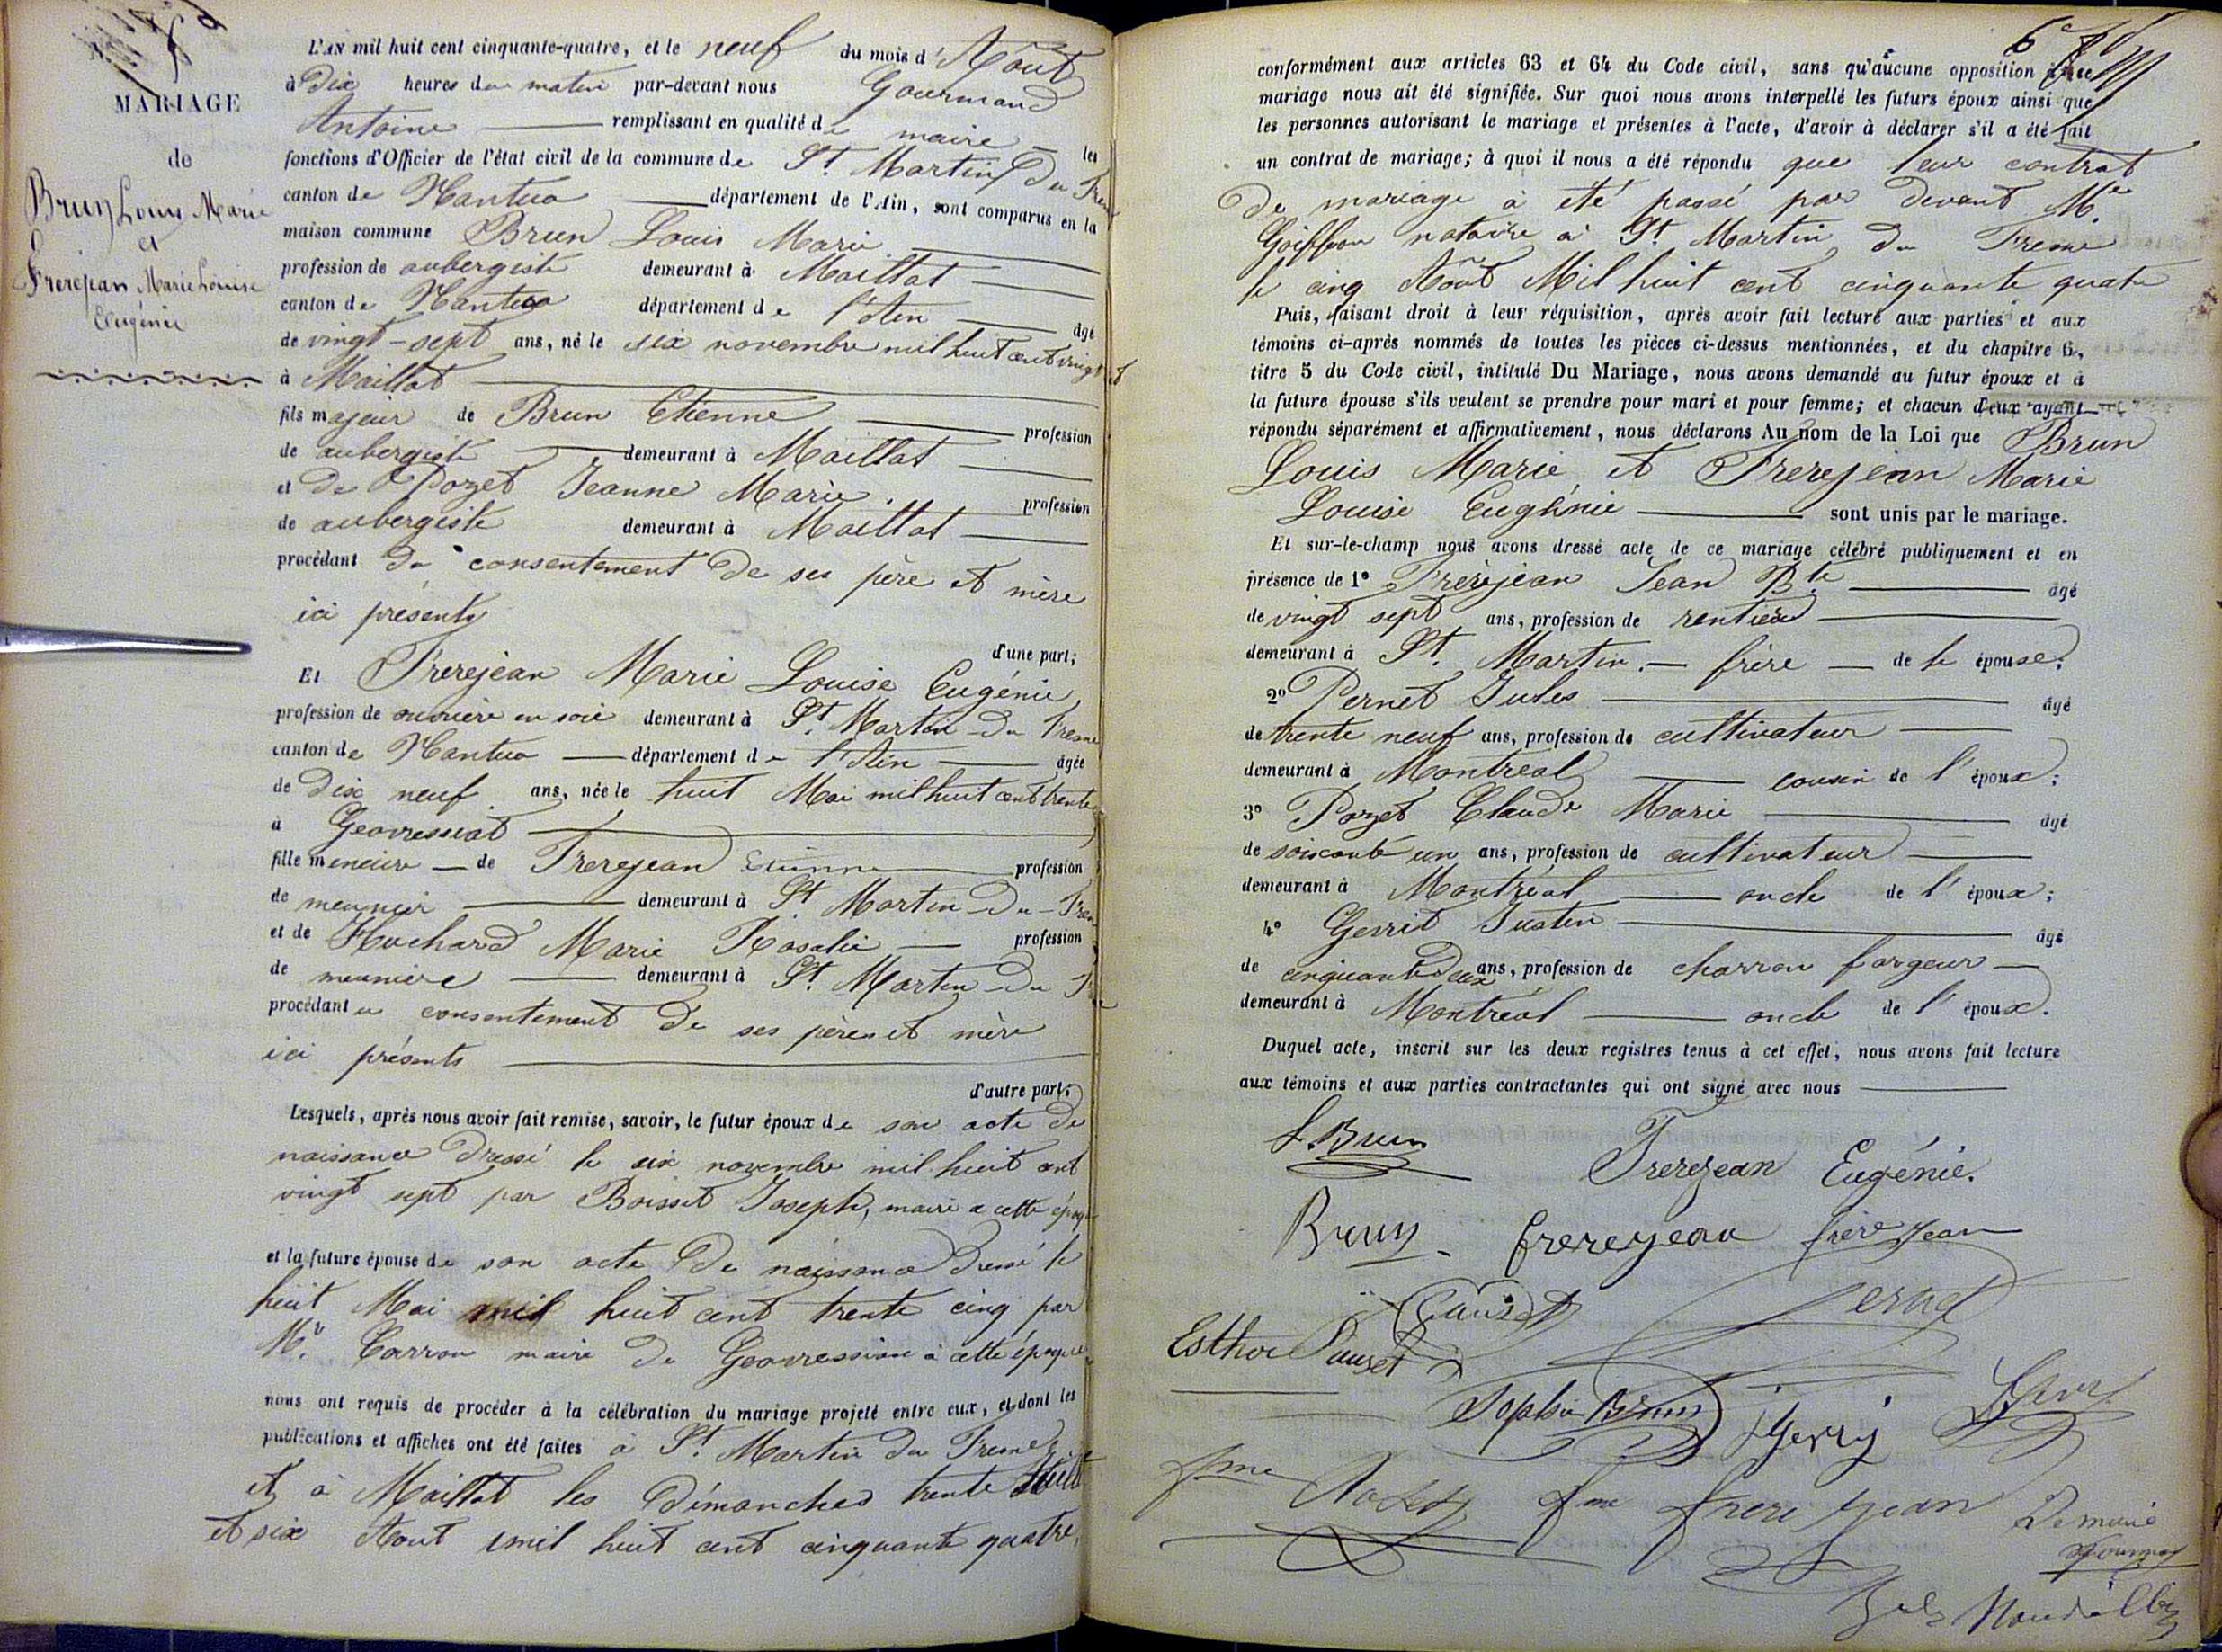 MARIAGE
de
Brun Louis Marie
et
Frerejean Marie Louise
Eugénie
L'AN mil huit cent cinquante-quatre, et le neuf du mois d'Août
à Dix heures du matin par-devant nous Gourmand
Antoine remplissant en qualité de maire les
fonctions d'Officier de l'état civil de la commune de St. Martin du Fresne
canton de Nantua département de l'Ain, sont comparus en la
maison commune Brun Louis Marie
profession de aubergiste demeurant à Maillat
canton de Nantua département de l'Ain âgé
de vingt-sept ans, né le six novembre mil huit cent vingt
à Maillat
fils majeur de Brun Etienne profession
de aubergiste demeurant à Maillat
et de Pozet Jeanne Marie profession
de aubergiste demeurant à Maillat
procédant du consentement de ses père et mère
ici présents
d'une part;
Et Frerejean Marie Louise Eugénie
profession de ouvrière en soie demeurant à St. Martin du Fresne
canton de Nantua département de l'Ain âgée
de dix neuf ans, née le huit Mai mil huit cent trente
à Geovressiat
fille mineure de Frerejean Etienne profession
de meunier demeurant à St. Martin-du-Fres
et de Huchard Marie Rosalie profession
de meunière demeurant à St. Martin-du
procédant du consentement de ses père et mère
ici présents
d'autre part;
Lesquels, après nous avoir fait remise, savoir, le futur époux de son acte de
naissance dressé le six novembre mil huit cent
vingt sept par Boisset Joseph, maire à cette époque
et la future épouse de son acte de naissance dressé le
huit Mai mil huit cent trente cinq par
Mr. Carron maire de Geovressiat à cette époque
nous ont requis de procéder à la célébration du mariage projeté entre eux, et dont les
publications et affiches ont été faites à St. Martin du Fresne
et à Maillat les Dimanches trente Juillet
et six Aout mil huit cent cinquante quatre,
6
conformément aux articles 63 et 64 du Code civil, sans qu'aucune opposition à ce
mariage nous ait été signifiée. Sur quoi nous avons interpellé les futurs époux ainsi que
les personnes autorisant le mariage et présentes à l'acte, d'avoir à déclarer s'il a été fait
un contrat de mariage; à quoi il nous a été répondu que leur contrat
de mariage a été passé par devant Me.
Goiffon notaire à St. Martin du Fresne
le cinq Août Mil huit cent cinquante quatre
Puis, faisant droit à leur réquisition, après avoir fait lecture aux parties et aux
témoins ci-après nommés de toutes les pièces ci-dessus mentionnées, et du chapitre 6,
titre 5 du Code civil, intitulé Du Mariage, nous avons demandé au futur époux et à
la future épouse s'ils veulent se prendre pour mari et pour femme; et chacun d'eux ayant
répondu séparément et affirmativement, nous déclarons Au nom de la Loi que Brun
Louis Marie et Frerejean Marie
Louise Eugénie sont unis par le mariage.
Et sur-le-champ nous avons dressé acte de ce mariage célébré publiquement et en
présence de 1° Frerejean Jean Bte âgé
de vingt sept ans, profession de rentier
demeurant à St. Martin frère de l épouse;
2° Pernet Jules âgé
de trente neuf ans, profession de cultivateur
demeurant à Montréal cousin de l'époux;
3° Pozet Claude Marie âgé
de soixante un ans, profession de cultivateur
demeurant à Montréal oncle de l'époux;
4° Gerrit Justin âgé
de cinquante deux ans, profession de charron forgeur
demeurant à Montréal oncle de l'époux.
Duquel acte, inscrit sur les deux registres tenus à cet effet, nous avons fait lecture
aux témoins et aux parties contractantes qui ont signé avec nous
L. Brun Frerejean Eugénie.
Brun frerejean frerejean
Pernet
Esther Pauset
Sophie Brun
fme fme frere jean Le maire
Gourmand